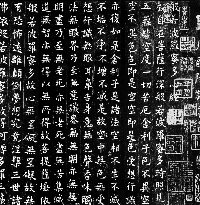 般若波羅蜜多心經
觀自在菩薩行深般若波羅蜜多時照見
五蘊皆空度一切苦厄舍利子色不異空
空不異色色即是空空即是色受想行識
亦復如是舍利子是諸法空相不生不滅
不垢不淨不增不減是故空中無色無受
想行識無眼耳鼻舌身意無色聲香味觸
法無眼界乃至無意識界無無明亦無無
明盡乃至無老死亦無老死盡無苦集滅
道無智亦無得以無所得故菩提薩埵依
般若波羅蜜多故心無罣礙無罣礙故無
有恐怖遠離顛倒夢想究竟涅槃三世諸